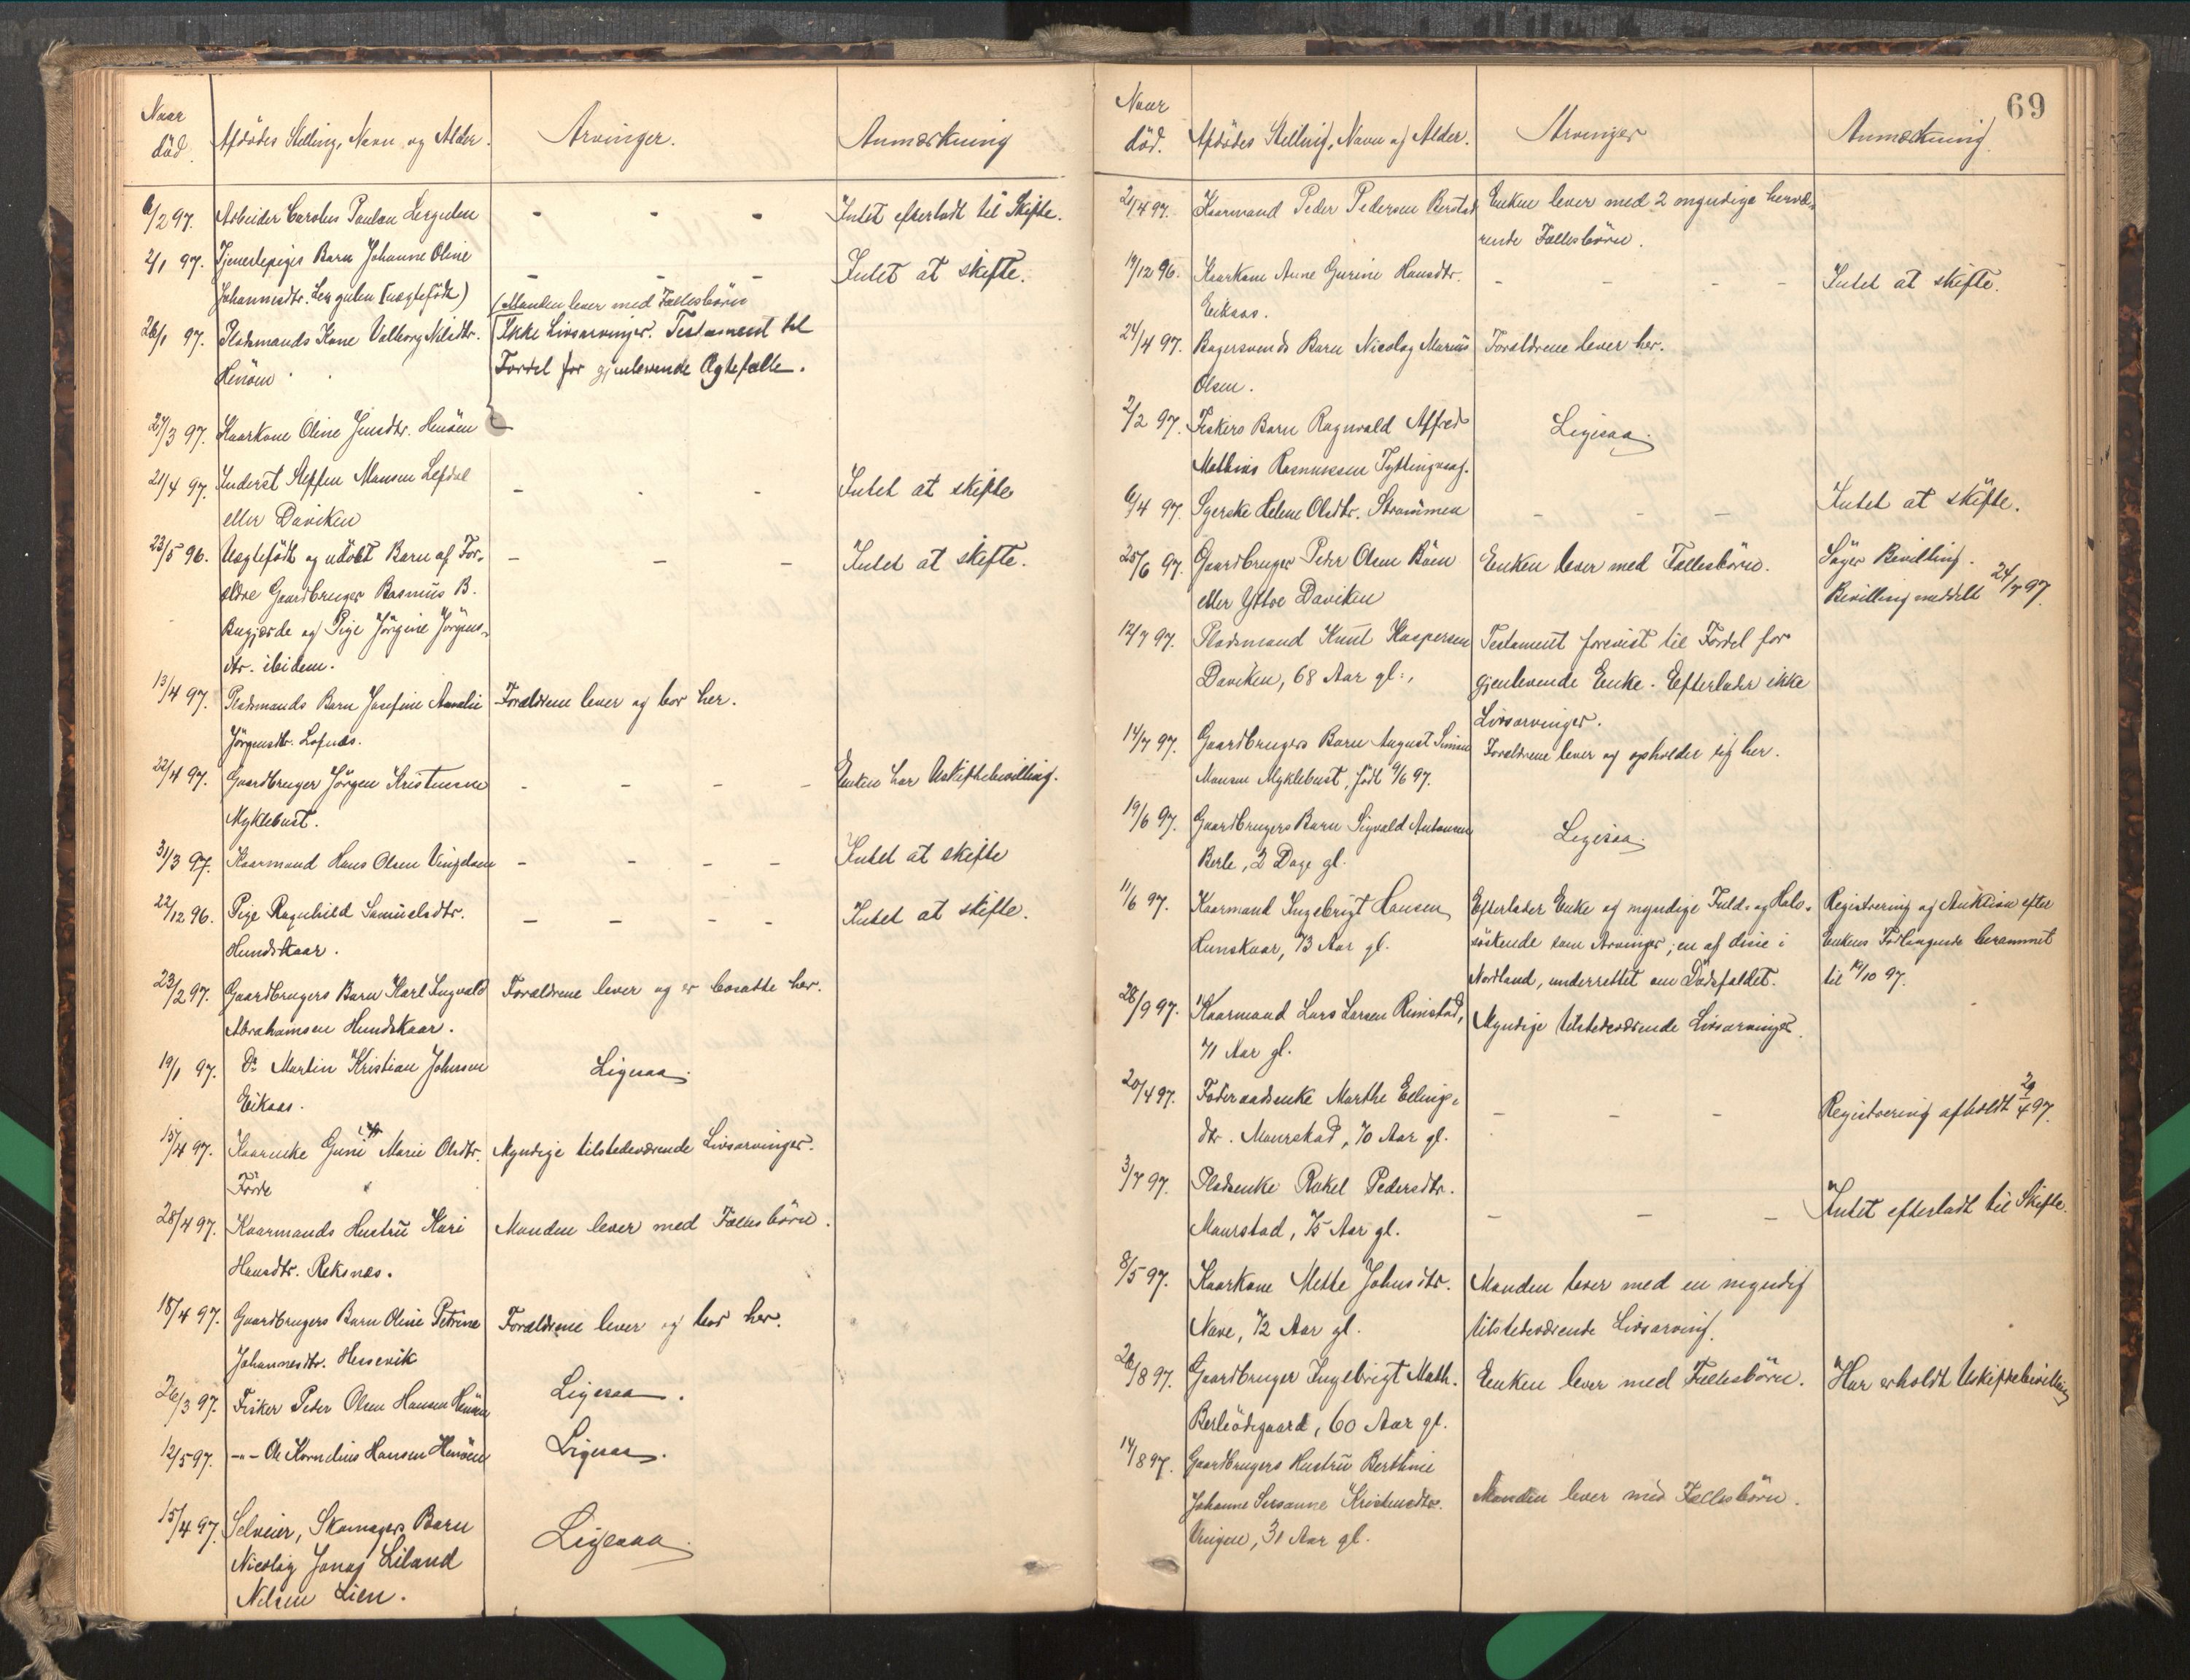 Naar
död.
Afdödes Stilling, Navn og Alder.
Arvinger.
Anmærkning
6/2 97. Arbeider Carolus Paulsen Lergulen - - - Intet efterladt til Skifte.
2/1 97. Tjenestepiges Barn Johanne Oline
Johannesdtr. Lergulen (uægtefödt) - - - Intet at skifte.
26/1 97. Pladsmands Kone Valborg Nilsdtr.
Henöen
(Manden lever med Fællesbörn
Ikke Livsarvinger. Testament til
Fordel for gjenlevende Ægtefælle.
27/3 97. Kaarkone Oline Jensdtr. Henöen
21/4 97. Inderst Steffen Monsen Lefdal
eller Daviken - - - Intet at skifte
23/5 96. Uægtefödt og udöbt Barn af For-
ældre Gaardbruger Rasmus B.
Bugjærde og Pige Jörgine Jörgens-
dtr. ibidem. - - - Intet at skifte.
13/4 97. Pladsmands Barn Josefine Amalie
Jörgensdtr. Lofnæs.
Forældrene lever og bor her.
22/4 97. Gaardbruger Jörgen Kristensen
Myklebust. - - - - Enken har Uskiftebevilling.
31/3 97. Kaarmand Hans Olsen Vingelven - - - - Intet at skifte
22/12 96. Pige Ragnhild Samuelsdtr.
Hundskaar. - - - - Intet at skifte.
23/2 97. Gaardbrugers Barn Karl Ingvald
Abrahamsen Hundskaar.
Forældrene lever og er bosatte her.
19/1 97. Do Martin Kristian Johnsen
Eikaas.
Ligesaa.
15/4 97. Kaarenke Guni Marie Olsdtr.
Förde
Myndige tilstedeværende Livsarvinger.
28/4 97. Kaarmands Hustru Kari
Hansdtr. Reksnæs.
Manden lever med Fællesbörn.
18/4 97. Gaardbrugers Barn Oline Petrine
Johannesdtr. Hessevik
Forældrene lever og bor her.
26/3 97. Fisker Peder Olsen Hansen Henöen
Ligesaa.
12/5 97. -"- Ole Kornelius Hansen Henöen
Ligesaa.
15/4 97. Selveier, Skomagers Barn
Nicolay Jonas Liland
Nilsen Lien.
Ligesaa.
69
Naar
död.
Afdödes Stilling, Navn og Alder.
Arvinger
Anmærkning.
21/4 97. Kaarmand Peder Pedersen Berstad
Enken lever med 2 myndige hervæ-
rende Fællesbörn.
19/12 96. Kaarkone Anne Gurine Hansdtr.
Eikaas. - - - - Intet at skifte.
24/4 97. Bagersvends Barn Nicolay Marius
Olsen.
Forældrene lever her.
2/2 97. Fiskers Barn Ragnvald Alfred
Mathias Rasmussen Tyttingvaag.
Ligesaa.
6/4 97. Syerske Helene Olsdtr. Strömmen - - - Intet at skifte.
25/6 97. Gaardbruger Peder Olsen Böen
eller Yttre Daviken
Enken lever med Fællesbörn.
Söger Bevilling.
Bevilling meddelt 24/7 97.
12/7 97. Pladsmand Knut Kaspersen
Daviken, 68 Aar gl.,
Testament forevist til Fordel for
gjenlevende Enke. Efterlader ikke
Livsarvinger.
14/7 97. Gaardbrugers Barn August Simon
Monsen Myklebust, födt 9/6 97.
Forældrene lever og opholder sig her.
19/6 97. Gaardbrugers Barn Sigvald Antonsen
Berle, 2 Dage gl.
Ligesaa.
11/6 97. Kaarmand Ingebrigt Hansen
Hunskaar, 73 Aar gl.
Efterlader Enke og myndige Huld- og Halv-
söskende som Arvinger; en af disse i
Nordland, underrettet om Dödsfaldet.
Registrering og Auktion efter
Enkens Forlangende berammet
til 19/10 97.
28/9 97. Kaarmand Lars Larsen Rimstad,
71 Aar gl.
Myndige tilstedeværende Livsarvinger.
20/4 97. Föderaadsenke Marthe Ellings-
dtr. Maurstad, 70 Aar gl. - - - Registrering afholdt 29/4 97.
3/7 97. Pladsenke Rakel Pedersdtr.
Maurstad, 75 Aar gl. - - - Intet efterladt til Skifte.
8/5 97. Kaarkone Mette Johnsdtr.
Nave, 72 Aar gl.
Manden lever med en myndig
tilstedeværende Livsarving.
26/8 97. Gaardbruger Ingebrigt Math.
Berleödegaard, 60 Aar gl.
Enken lever med Fællesbörn.
Har erholdt Uskiftebevilling
14/8 97. Gaardbrugers Hustru Berthine
Johanne Susanne Kristensdtr.
Vingen, 31 Aar gl.
Manden lever med Fællesbörn.